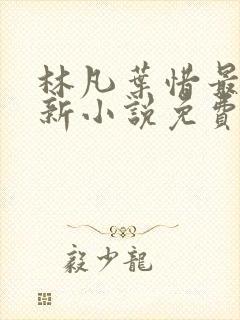 林凡葉惜最
新小說免費
毅少龍